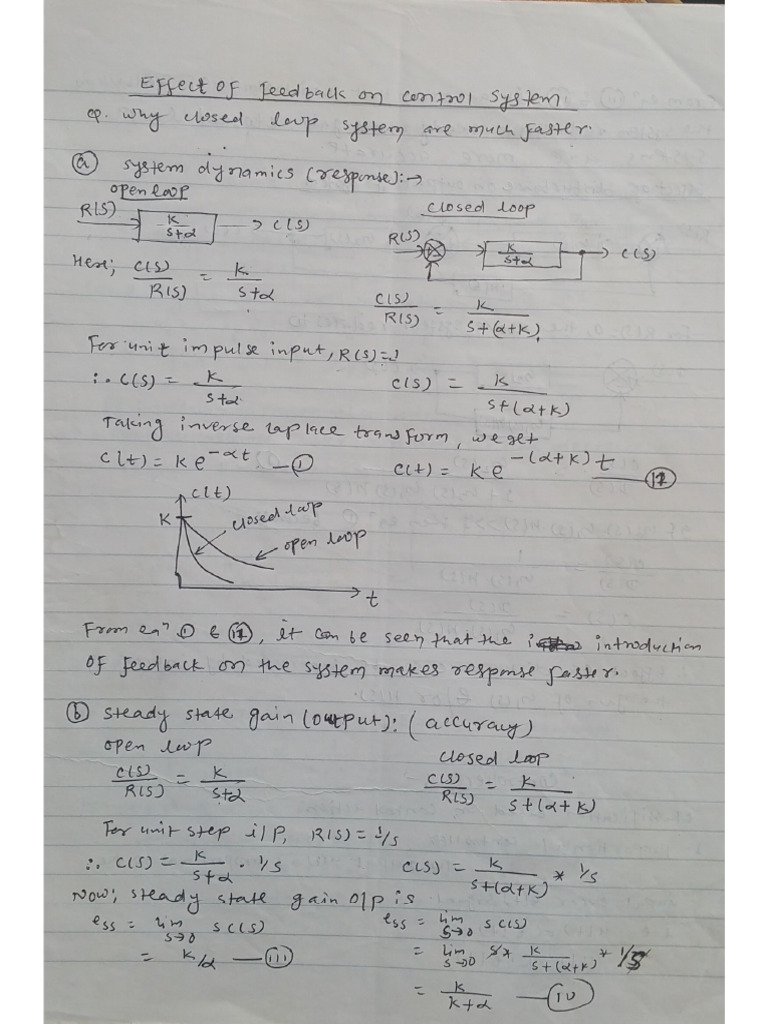 Effect of feedback on control system
Q. why closed loop system are much faster.
(a) system dynamics (response):→
open loop
closed loop
R(S) K/(S+α) → C(S)
R(S) K/(S+α) → C(S)
Here; C(S)/R(S) = K/(S+α)
C(S)/R(S) = K/(S+(α+K))
For unit impulse input, R(S)=1
∴ C(S) = K/(S+α)
C(S) = K/(S+(α+K))
Taking inverse laplace transform, we get
C(t) = K e^{-αt} — (I)
C(t) = K e^{-(α+K)t} — (II)
C(t)
K
closed loop
open loop
t
From eqn (I) & (II), it can be seen that the introduction
of feedback on the system makes response faster.
(b) steady state gain (output): (accuracy)
open loop
closed loop
C(S)/R(S) = K/(S+α)
C(S)/R(S) = K/(S+(α+K))
For unit step i/p, R(S) = 1/S
∴ C(S) = K/(S+α) . 1/S
C(S) = K/(S+(α+K)) * 1/S
Now; steady state gain o/p is
ess = lim S→0 S C(S)
ess = lim S→0 S C(S)
= K/α — (III)
= lim S→0 S * K/(S+(α+K)) * 1/S
= K/(K+α) — (IV)